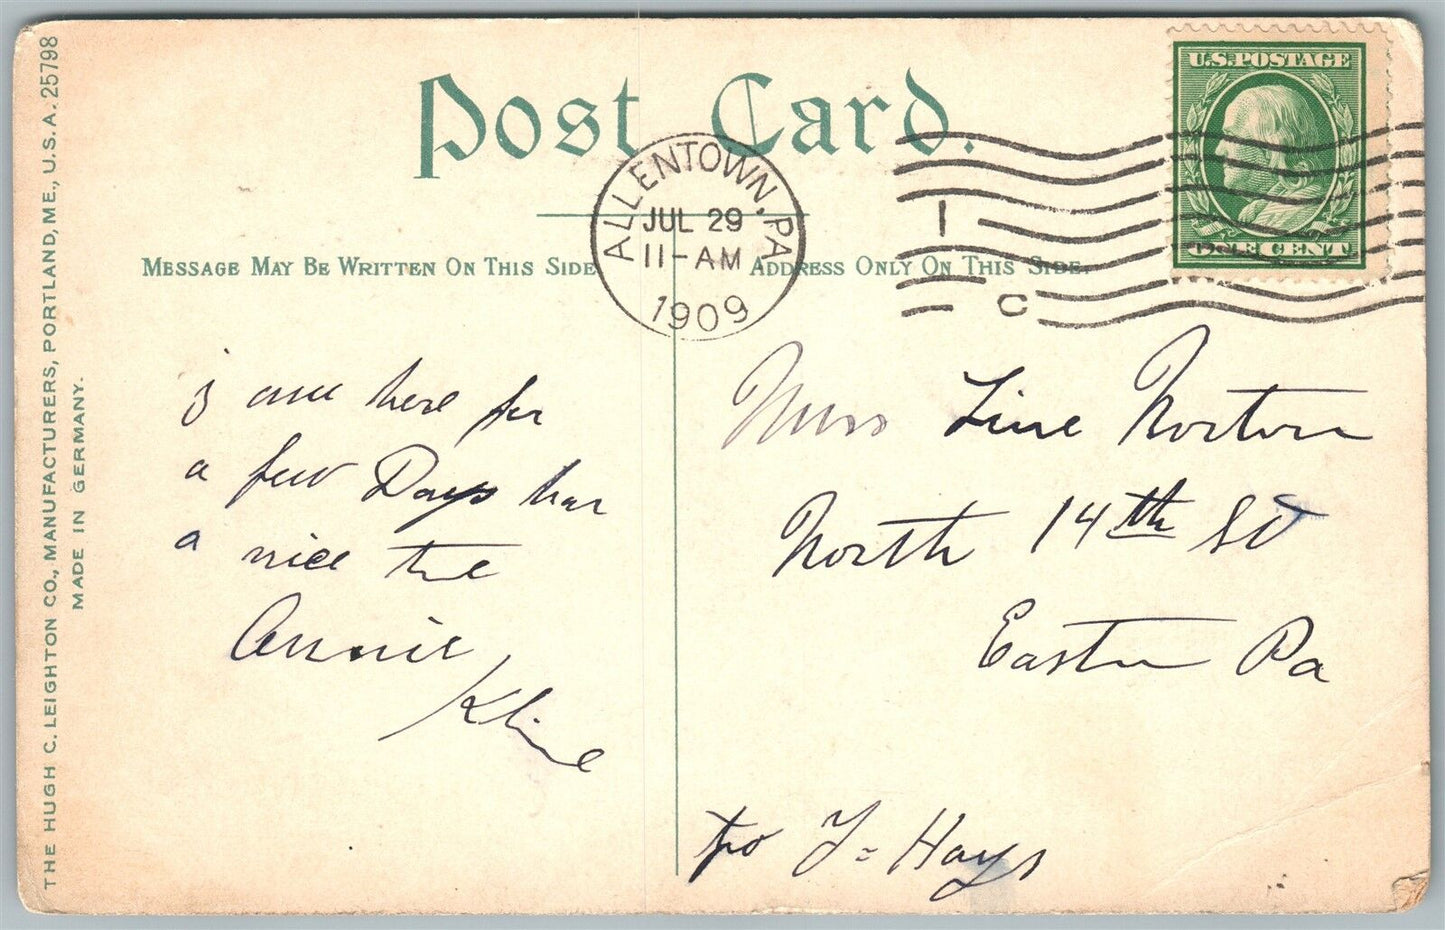 Post Card.
U.S. POSTAGE
ONE CENT
ALLENTOWN, PA
JUL 29
11-AM
1909
1
C
MESSAGE MAY BE WRITTEN ON THIS SIDE
ADDRESS ONLY ON THIS SIDE.
THE HUGH C. LEIGHTON CO., MANUFACTURERS, PORTLAND, ME., U.S.A. 25798
MADE IN GERMANY.
i am here for
a few Days hav
a nice
Annie
Kline
Miss Norton
North 14th St
Easton Pa
Hays